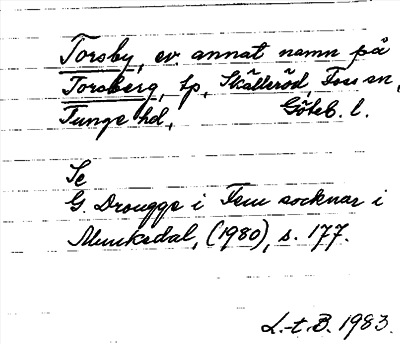 Torsby, ev annat namn på
Torsberg, tp, Skälleröd, Foss sn,
Tunge hd, Göteb. l.
Se
G. Drougge i Fem socknar i
Munkedal, (1980), s. 177.
L.-t. B. 1983.